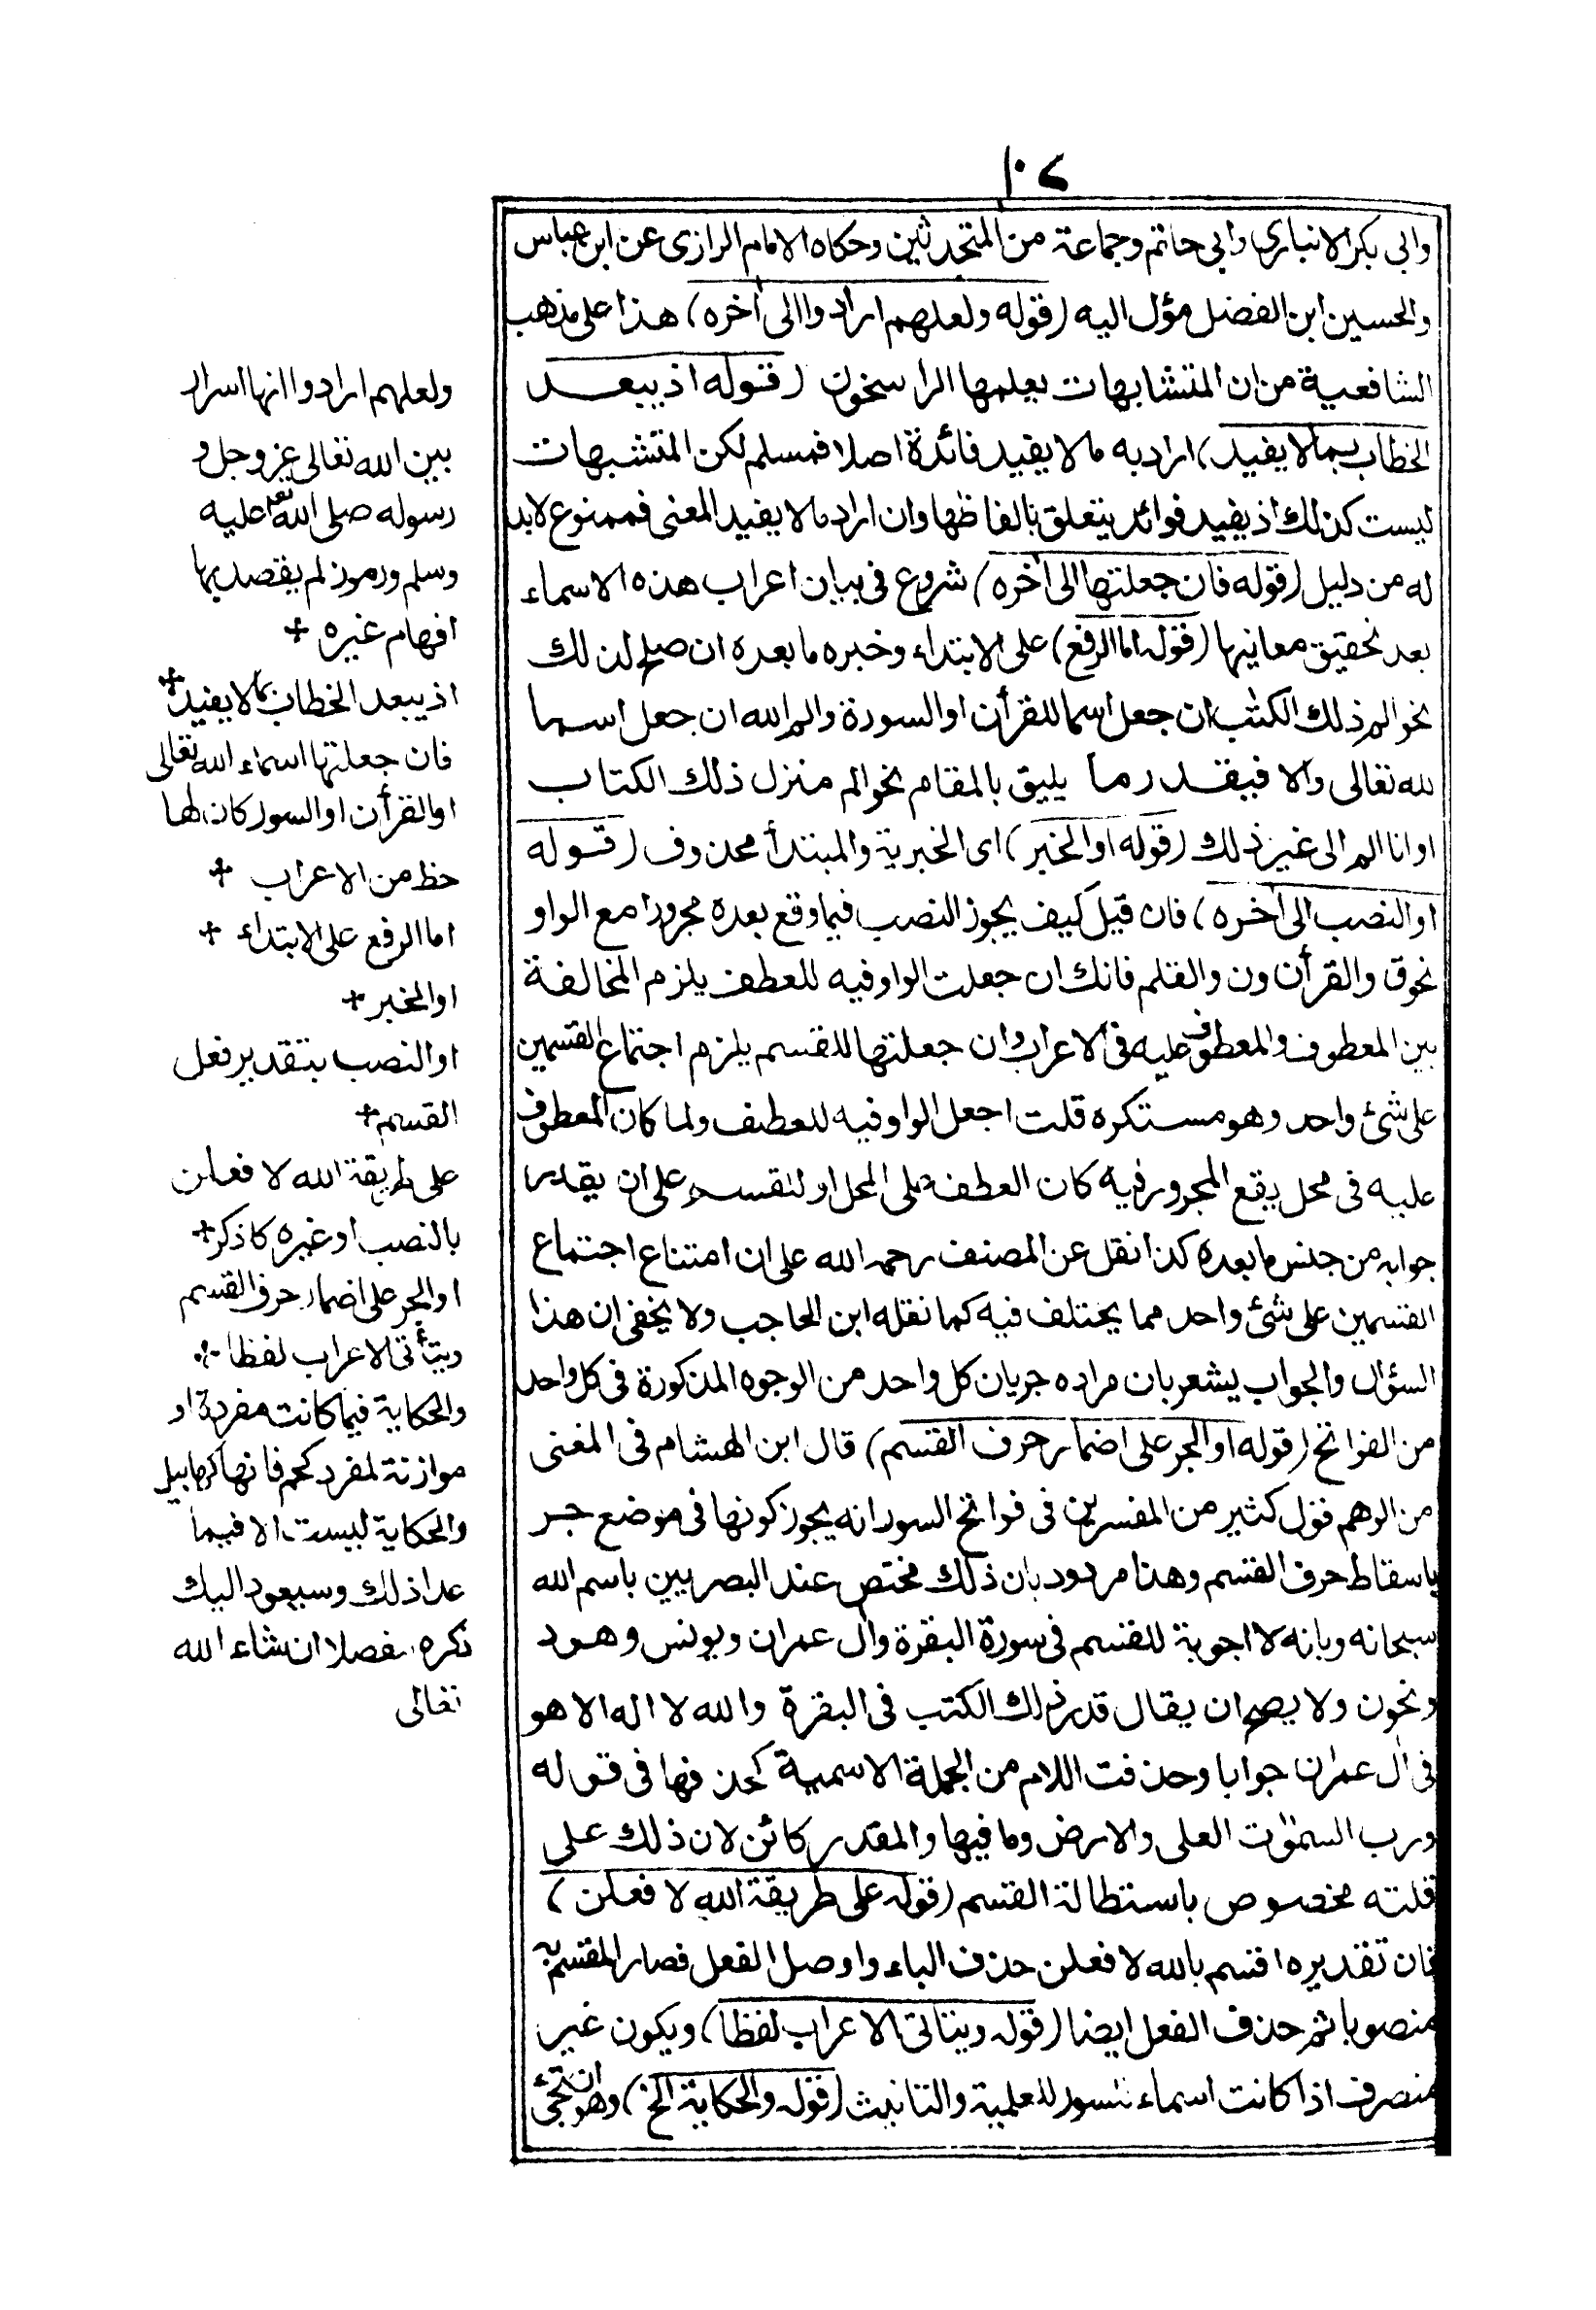 ١٠٧
وابى بكر الانبارى وابى حاتم وجماعة من المتحدثين وحكاه الامام الرازى عن ابن عباس
والحسين ابن الفضل مؤل اليه (قوله ولعلهم ارادوا الى أخره) هذا على مذهب
الشافعية من ان المتشابهات يعلمها الراسخون (قوله اذ يبعد
الخطاب بما لا يفيد) اراد به ما لا يفيد فائدة اصلا فمسلم لكن المتشبهات
ليست كذلك اذ يفيد فوائد يتعلق بالفاظها وان اراد ما لا يفيد المعنى فممنوع لابد
له من دليل (قوله فان جعلتها الى أخره) شروع فى بيان اعراب هذه الاسماء
بعد تحقيق معانيها (قوله اما الرفع) على الابتداء وخبره ما بعده ان صلح لذلك
نحو الم ذلك الكتب ان جعل اسما للقرأن او السورة والم الله ان جعل اسما
لله تعالى والا فيقدر ما يليق بالمقام نحو الم منزل ذلك الكتاب
او انا الم الى غير ذلك (قوله او الخبر) اى الخبرية والمبتدأ محذوف (قوله
او النصب الى أخره) فان قيل كيف يجوز النصب فيما وقع بعده مجرورا مع الواو
نحو ق والقرأن ون والقلم فانك ان جعلت الواو فيه للعطف يلزم المخالفة
بين المعطوف والمعطوف عليه فى الاعراب وان جعلتها للقسم يلزم اجتماع القسمين
على شئ واحد وهو مستكره قلت اجعل الواو فيه للعطف ولما كان المعطوف
عليه فى محل يقع المجرور فيه كان العطف على المحل او للقسم على ان يقدر
جوابه من جنس ما بعده كذا نقل عن المصنف رحمه الله على ان امتناع اجتماع
القسمين على شئ واحد مما يختلف فيه كما نقله ابن الحاجب ولا يخفى ان هذا
السؤال والجواب يشعر بان مراده جريان كل واحد من الوجوه المذكورة فى كل واحد
من الفواتح (قوله او الجر على اضمار حرف القسم) قال ابن الهشام فى المغنى
من الوهم قول كثير من المفسرين فى فواتح السور انه يجوز كونها فى موضع جر
باسقاط حرف القسم وهذا مردود بان ذلك مختص عند البصريين باسم الله
سبحانه وبانه لا اجوبة للقسم فى سورة البقرة وال عمران ويونس وهود
ونحون ولا يصح ان يقال قدر ذلك الكتب فى البقرة والله لا اله الا هو
فى ال عمران جوابا وحذفت اللام من الجملة الاسمية كحذفها فى قوله
ورب السموات العلى والارض وما فيها والمقدر كائن لان ذلك على
قلته مخصوص باستطالة القسم (قوله على طريقة الله لافعلن)
فان تقديره اقسم بالله لافعلن حذف الباء واوصل الفعل فصار المقسم به
منصوبا ثم حذف الفعل ايضا (قوله ويتاتى الاعراب لفظا) ويكون غير
منصرف اذا كانت اسماء للسور للعلمية والتانيث (قوله والحكاية الخ) وهو ان تجئ
ولعلهم ارادوا انها اسرار
بين الله تعالى عز وجل و
رسوله صلى الله تع عليه
وسلم ورموز لم يقصد بها
افهام غيره +
اذ يبعد الخطاب بما لا يفيد +
فان جعلتها اسماء الله تعالى
او القرأن او السور كان لها
حظ من الاعراب +
اما الرفع على الابتداء +
او الخبر +
او النصب بتقدير فعل
القسم +
على طريقة الله لافعلن
بالنصب او غيره كما ذكر +
او الجر على اضمار حرف القسم
ويتأتى الاعراب لفظا
والحكاية فيما كانت مفردة او
موازنة لمفرد كحم فانها كهابيل
والحكاية ليست الا فيما
عدا ذلك وسيعود اليك
ذكره مفصلا ان شاء الله
تعالى